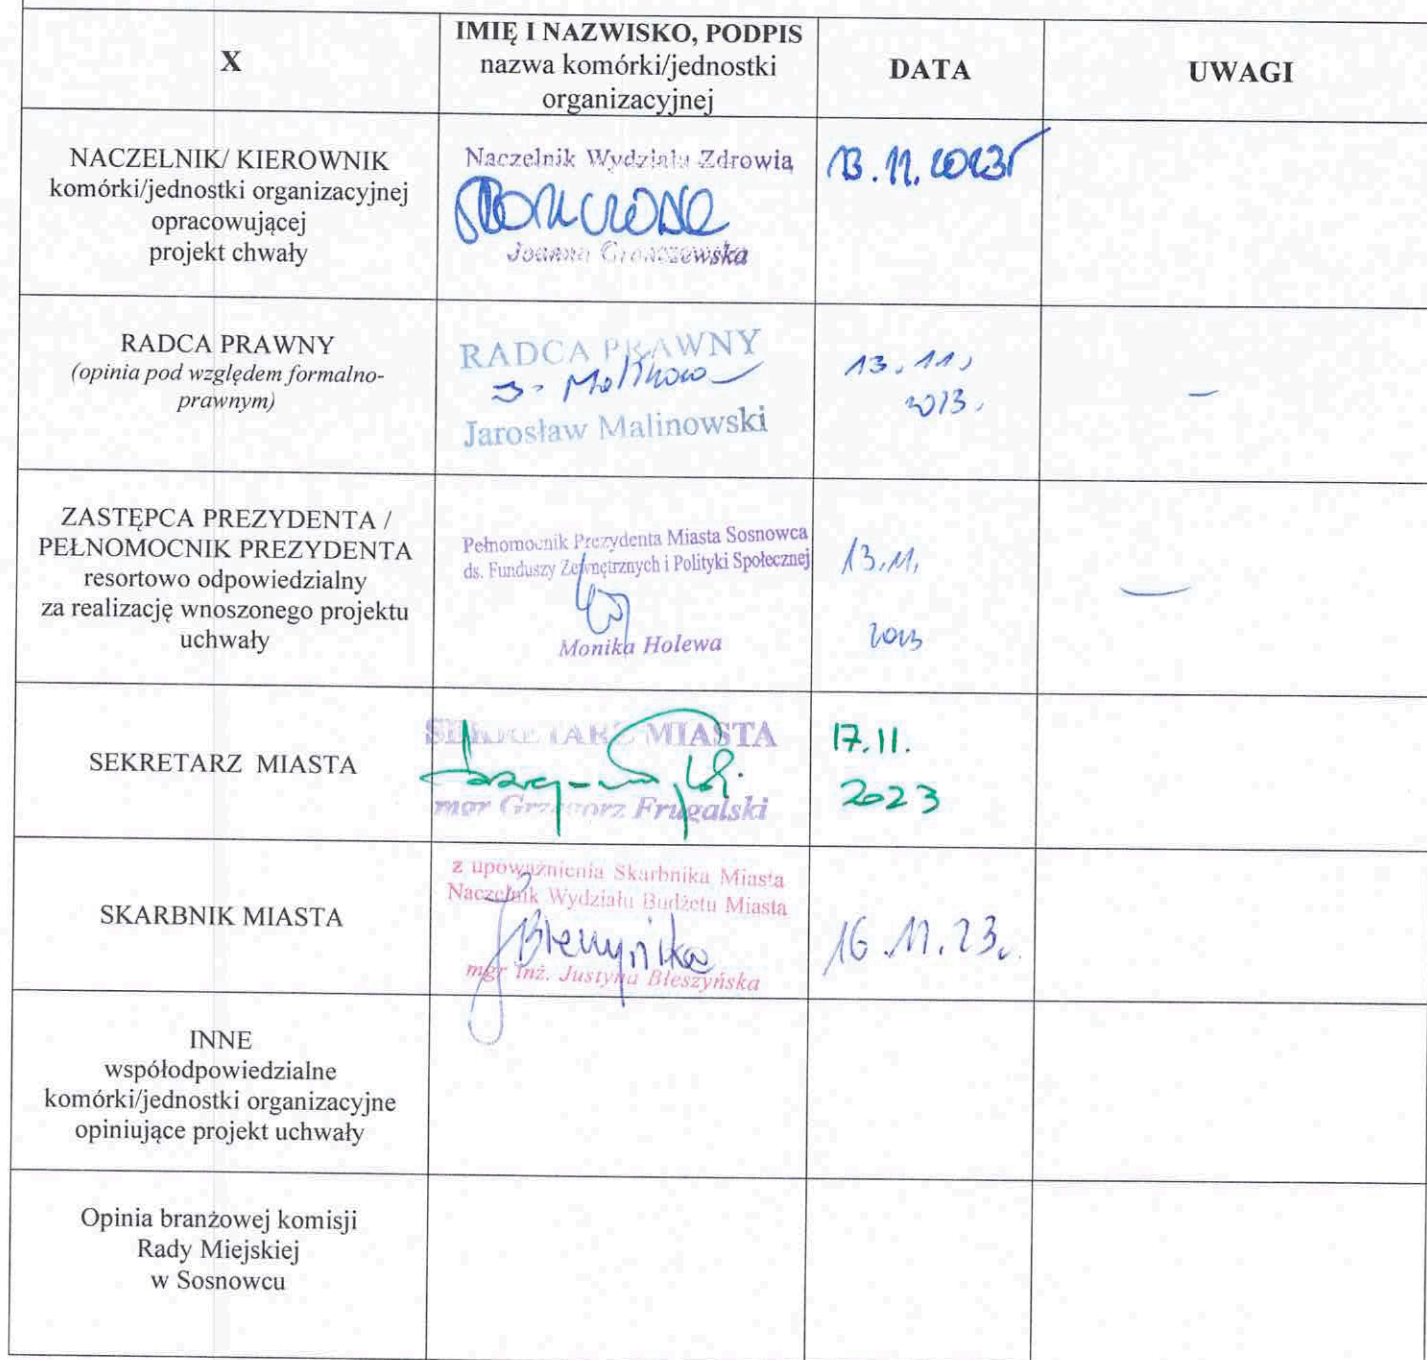 X
IMIĘ I NAZWISKO, PODPIS
nazwa komórki/jednostki
organizacyjnej
DATA
UWAGI
NACZELNIK/ KIEROWNIK
komórki/jednostki organizacyjnej
opracowującej
projekt chwały
Naczelnik Wydziału Zdrowia
Joanna
13.11.2023r
RADCA PRAWNY
(opinia pod względem formalno-
prawnym)
RADCA PRAWNY
Jarosław Malinowski
13.11,
2023.
–
ZASTĘPCA PREZYDENTA /
PEŁNOMOCNIK PREZYDENTA
resortowo odpowiedzialny
za realizację wnoszonego projektu
uchwały
Pełnomocnik Prezydenta Miasta Sosnowca
ds. Funduszy Zewnętrznych i Polityki Społecznej
Monika Holewa
13.11.
2023
–
SEKRETARZ MIASTA
SEKRETARZ MIASTA
mgr Grzegorz Frugalski
17.11.
2023
SKARBNIK MIASTA
z upoważnienia Skarbnika Miasta
Naczelnik Wydziału Budżetu Miasta
mgr inż. Justyna Błeszyńska
16.11.23r.
INNE
współodpowiedzialne
komórki/jednostki organizacyjne
opiniujące projekt uchwały
Opinia branżowej komisji
Rady Miejskiej
w Sosnowcu